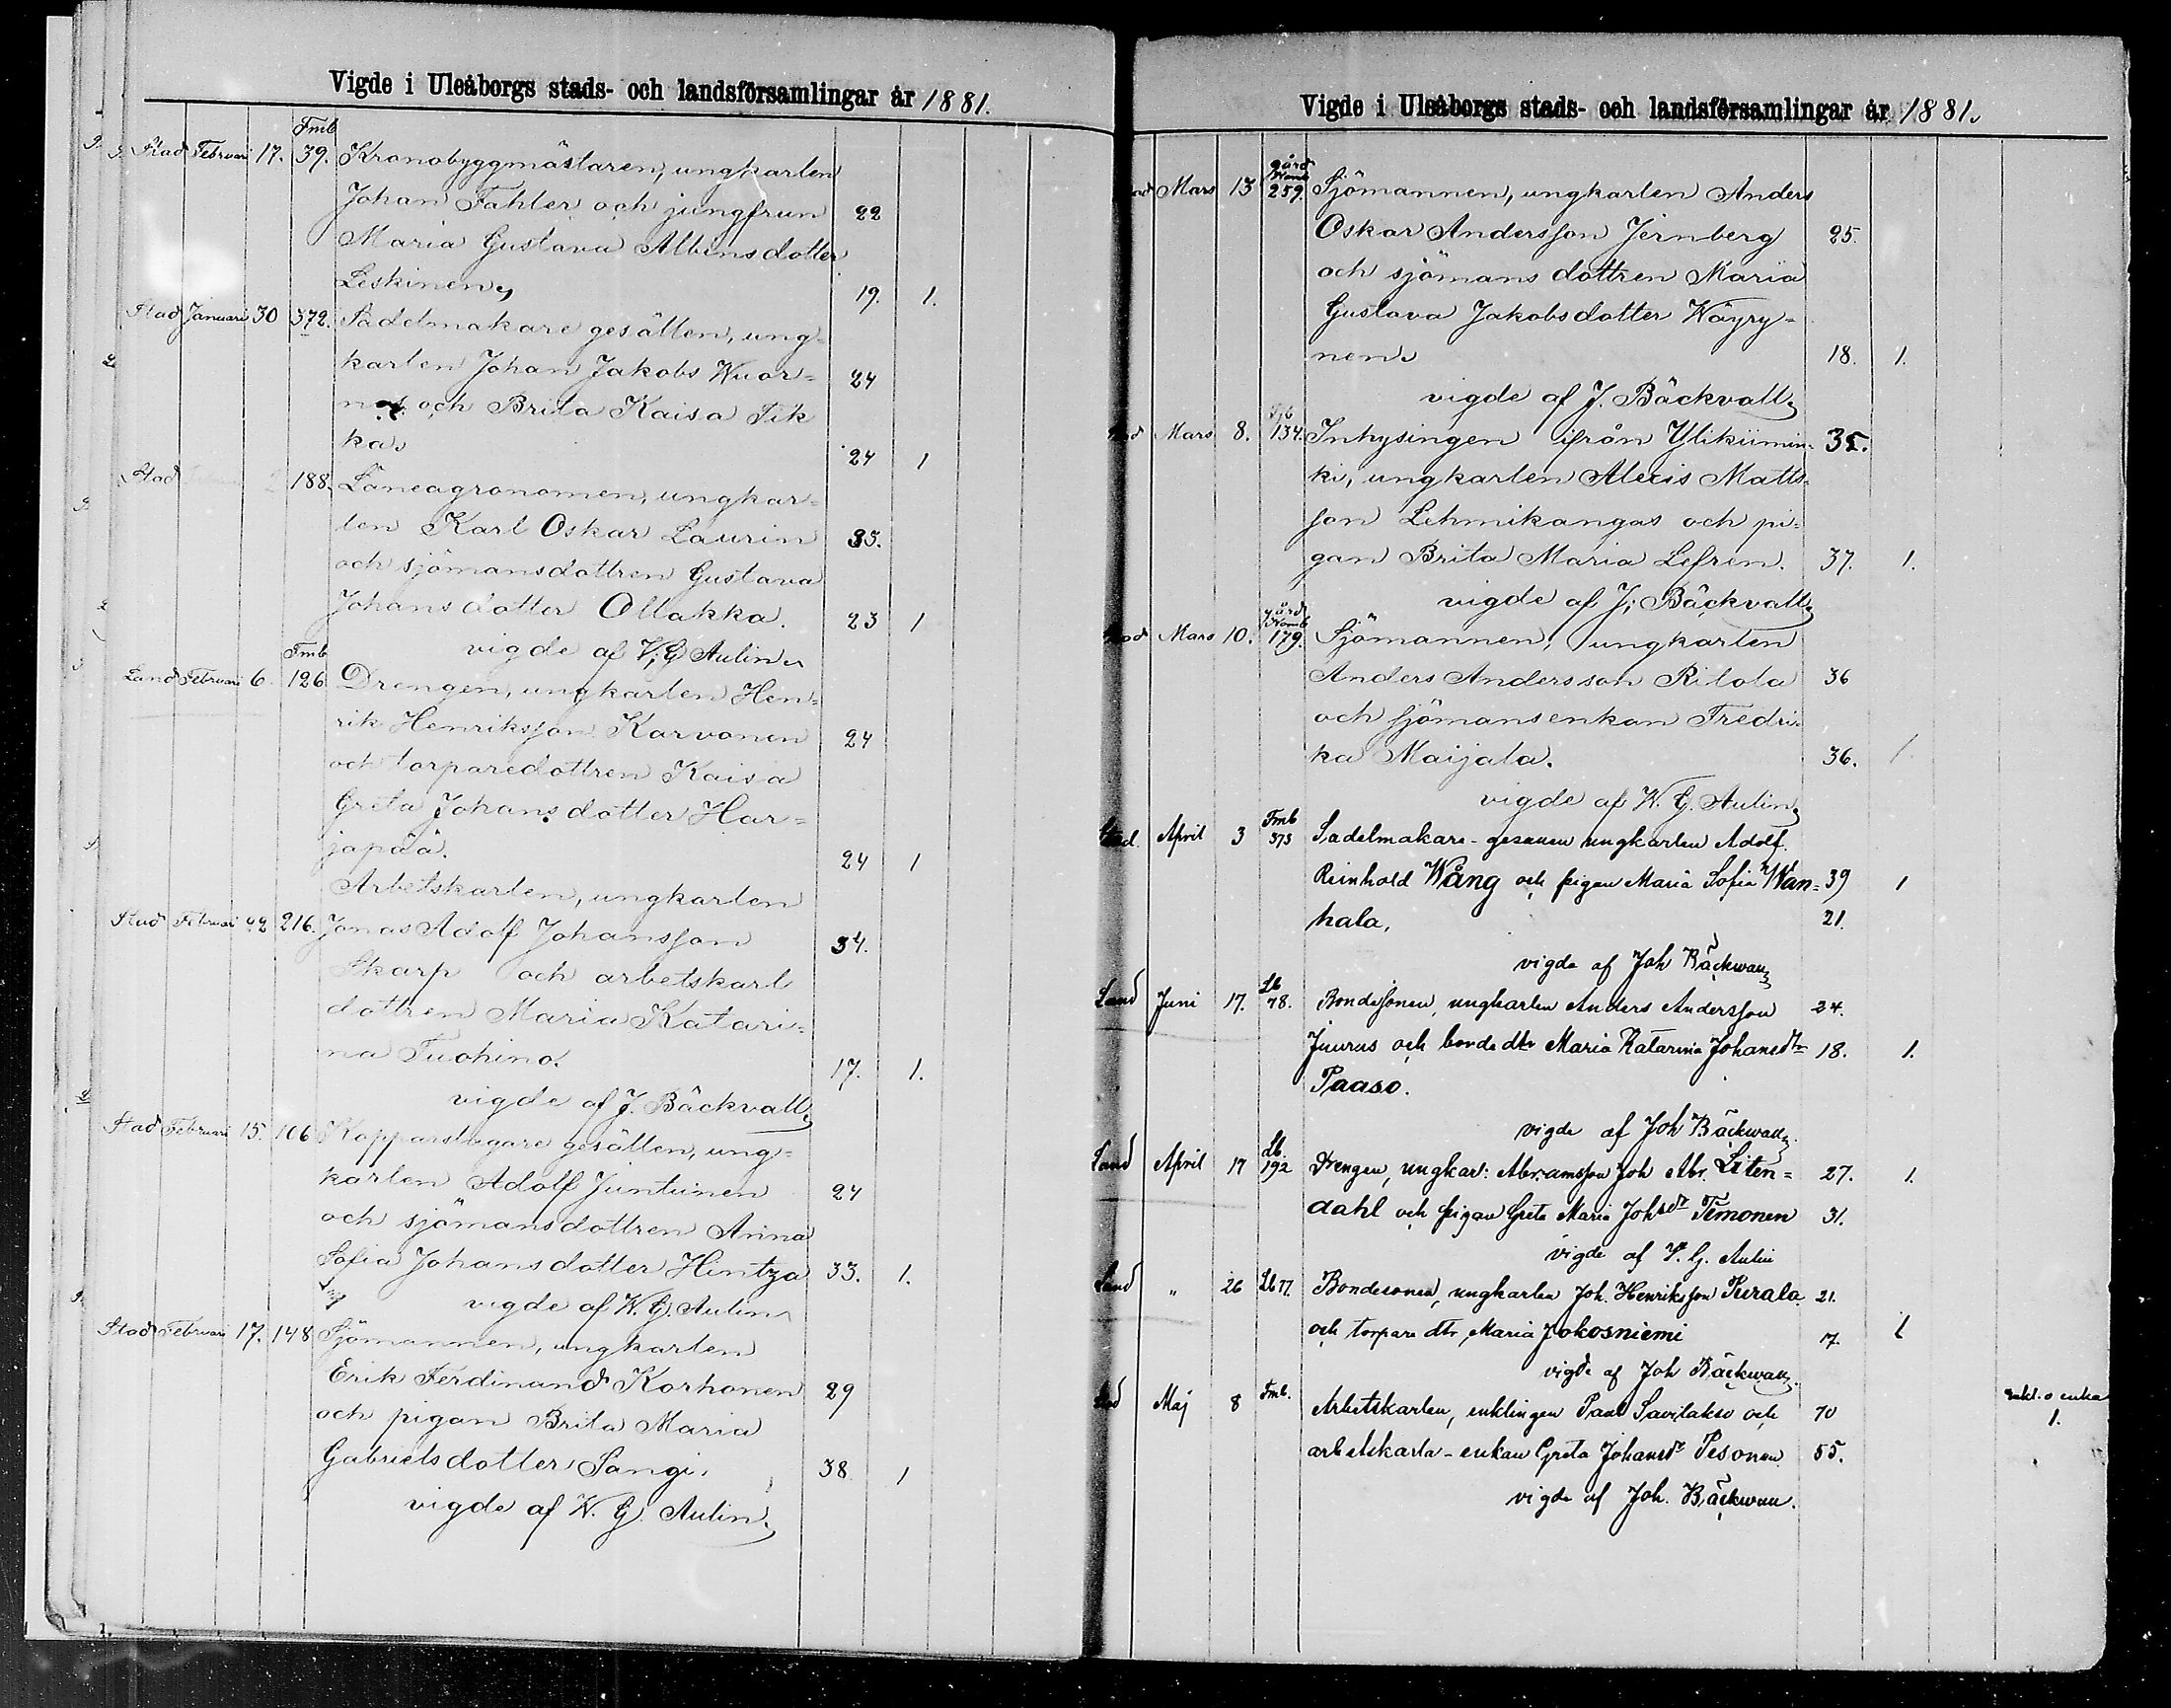 Vigde i Uleåborgs stads- och landsförsamlingar år 1881.
Fmb
Stad Februari 17. 39. Kronobyggmästaren, ungkarlen
Johan Fahler och jungfrun 22
Maria Gustava Albinsdotter
Leskinen, 19. 1.
Stad Januari 30 372. Sadelmakare gesällen, ung-
karlen Johan Jakobs Wuor- 24
nos och Brita Kaisa Tik
ka. 24 1
Stad 188. Läneagronomen, ungkar-
len Karl Oskar Laurin 35.
och sjömansdottren Gustava
Johansdotter Ollakka. 23 1
vigde af V. G Aulin.
Fmb
Land Februari 6. 126 Drengen, ungkarlen Hen-
rik Henriksson Karvonen 24
och torparedottren Kaisa
Greta Johansdotter Har-
japää. 24 1
Arbetskarlen, ungkarlen
Stad Februari 22 216. Jonas Adolf Johansson 34.
Skarp och arbetskarl
dottren Maria Katari-
na Tuohino. 17. 1.
vigde af J. Bäckvall
Stad Februari 15. 106 Kopparslagare gesällen, ung-
karlen Adolf Juntunen 24
och sjömansdottren Anna
Sofia Johansdotter Hintza 33. 1.
vigde af W. G. Aulin
Stad Februari 17. 148 Sjömannen, ungkarlen
Erik Ferdinand Korhonen 29
och pigan Brita Maria
Gabrielsdotter Sangi. 38. 1
vigde af W. G. Aulin.
Vigde i Uleåborgs stads- och landsförsamlingar år 1881.
gård
Mars 13 259. Sjömannen, ungkarlen Anders
Oskar Andersson Jernberg 25.
och sjömans dottren Maria
Gustava Jakobsdotter Wäyry-
nen. 18. 1.
vigde af J. Bäckvall
Mars 8. 134. Inhysingen ifrån Ylikiimin-35.
ki, ungkarlen Alexis Matts-
son Lehmikangas och pi-
gan Brita Maria Lefren. 37. 1.
vigde af J. Bäckvall
gård
Mars 10. 179. Sjömannen, ungkarlen
Anders Andersson Ritola 36
och sjömansenkan Fredri-
ka Maijala. 36. 1
vigde af W. G. Aulin
Fmb
Stad April 3 373 Sadelmakare-gesällen ungkarlen Adolf
Reinhold Wång och pigan Maria Sofia Wan- 39 1
hala. 21.
vigde af Joh Bäckwall
Lb
Land Juni 17. 78. Bondesonen, ungkarlen Anders Andersson 24.
Juurus och bonde dtr Maria Katarina Johansdtr 18. 1.
Paaso.
vigde af Joh Bäckwall
Lb.
Land April 17 192 Drengen, ungkar: Abramsson Joh Abr. Liten- 27. 1.
dahl och pigan Greta Maria Johsdr Timonen 31.
vigde af V. G. Aulin
Land " 26 Lb 77. Bondesonen, ungkarlen Joh. Henriksson Pirala 21.
och torpare dtr, Maria Jokosniemi 17 1
vigde af Joh Bäckwall.
Stad Maj 8 Fmb. Arbetskarlen, enklingen Paul Savilakso och 70 enkl. o enka 1.
arbetskarls-enkan Greta Johansdr Pesonen 55.
vigde af Joh. Bäckwall.